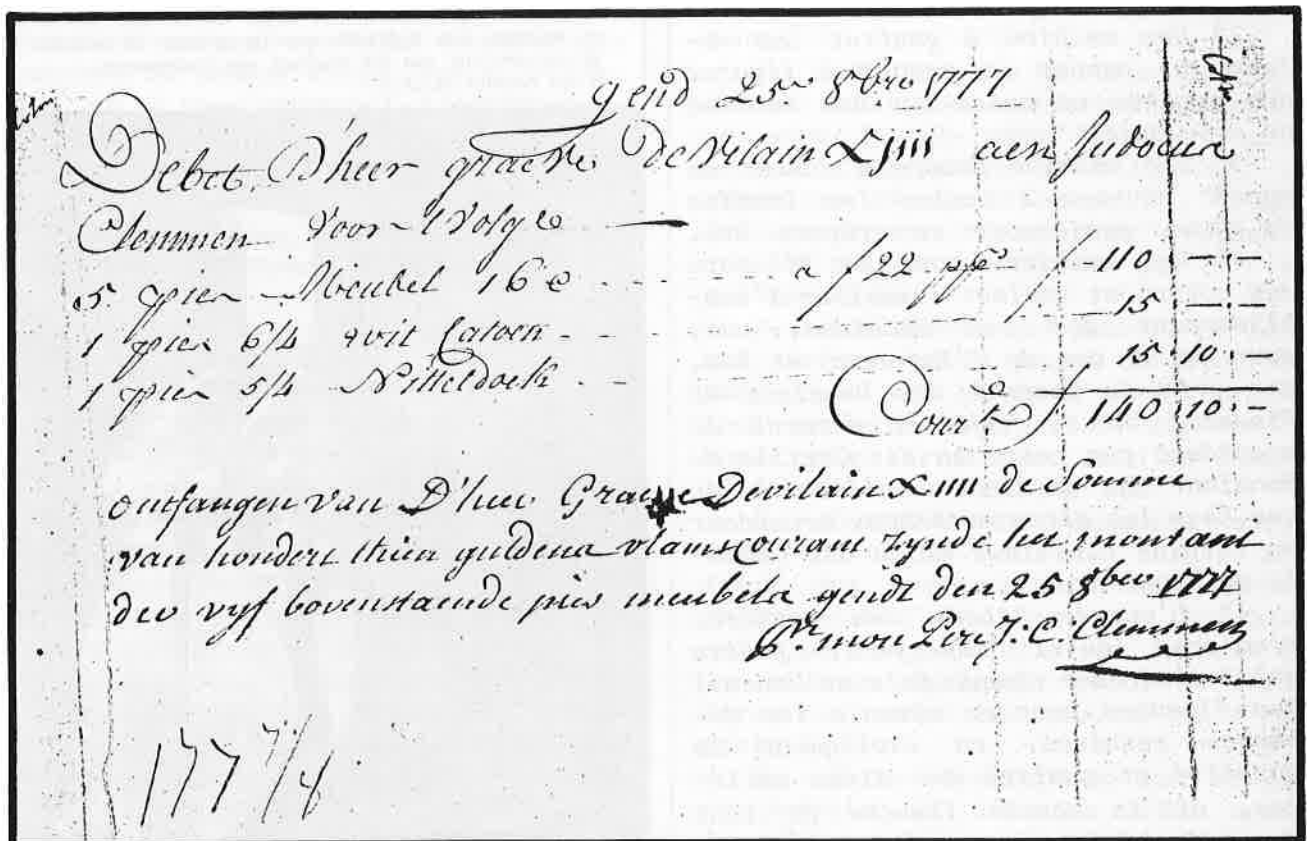 gend 25 8bre 1777
Debet D'heer graeve de Vilain XIIII aen Judocus
Clemmen voor 't volg e
5 pies Meubel 16 e a f 22 pies f 110 — —
1 pies 6/4 wit Catoen 15 — —
1 pies 5/4 Nitteldoek 15 10 —
Cour.t f 140 : 10 : —
ontfangen van D'heer Graeve Devilain XIIII de Somme
van hondert thien guldens vlams courant zynde het montant
der vyf bovenstaende pies meubels gendt den 25 8ber 1777
Pr. mon Pere J: C. Clemmen
177 7/4